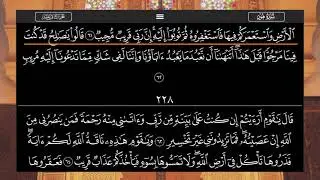 ٱلۡأَرۡضِ وَٱسۡتَعۡمَرَكُمۡ فِيهَا فَٱسۡتَغۡفِرُوهُ ثُمَّ تُوبُوٓاْ إِلَيۡهِۚ إِنَّ رَبِّي قَرِيبٞ مُّجِيبٞ ٦١ قَالُواْ يَٰصَٰلِحُ قَدۡ كُنتَ
فِينَا مَرۡجُوّٗا قَبۡلَ هَٰذَآۖ أَتَنۡهَىٰنَآ أَن نَّعۡبُدَ مَا يَعۡبُدُ ءَابَآؤُنَا وَإِنَّنَا لَفِي شَكّٖ مِّمَّا تَدۡعُونَآ إِلَيۡهِ مُرِيبٖ
٦٢
٢٢٨
قَالَ يَٰقَوۡمِ أَرَءَيۡتُمۡ إِن كُنتُ عَلَىٰ بَيِّنَةٖ مِّن رَّبِّي وَءَاتَىٰنِي مِنۡهُ رَحۡمَةٗ فَمَن يَنصُرُنِي مِنَ
ٱللَّهِ إِنۡ عَصَيۡتُهُۥۖ فَمَا تَزِيدُونَنِي غَيۡرَ تَخۡسِيرٖ ٦٣ وَيَٰقَوۡمِ هَٰذِهِۦ نَاقَةُ ٱللَّهِ لَكُمۡ ءَايَةٗۖ
فَذَرُوهَا تَأۡكُلۡ فِيٓ أَرۡضِ ٱللَّهِۖ وَلَا تَمَسُّوهَا بِسُوٓءٖ فَيَأۡخُذَكُمۡ عَذَابٞ قَرِيبٞ ٦٤ فَعَقَرُوهَا